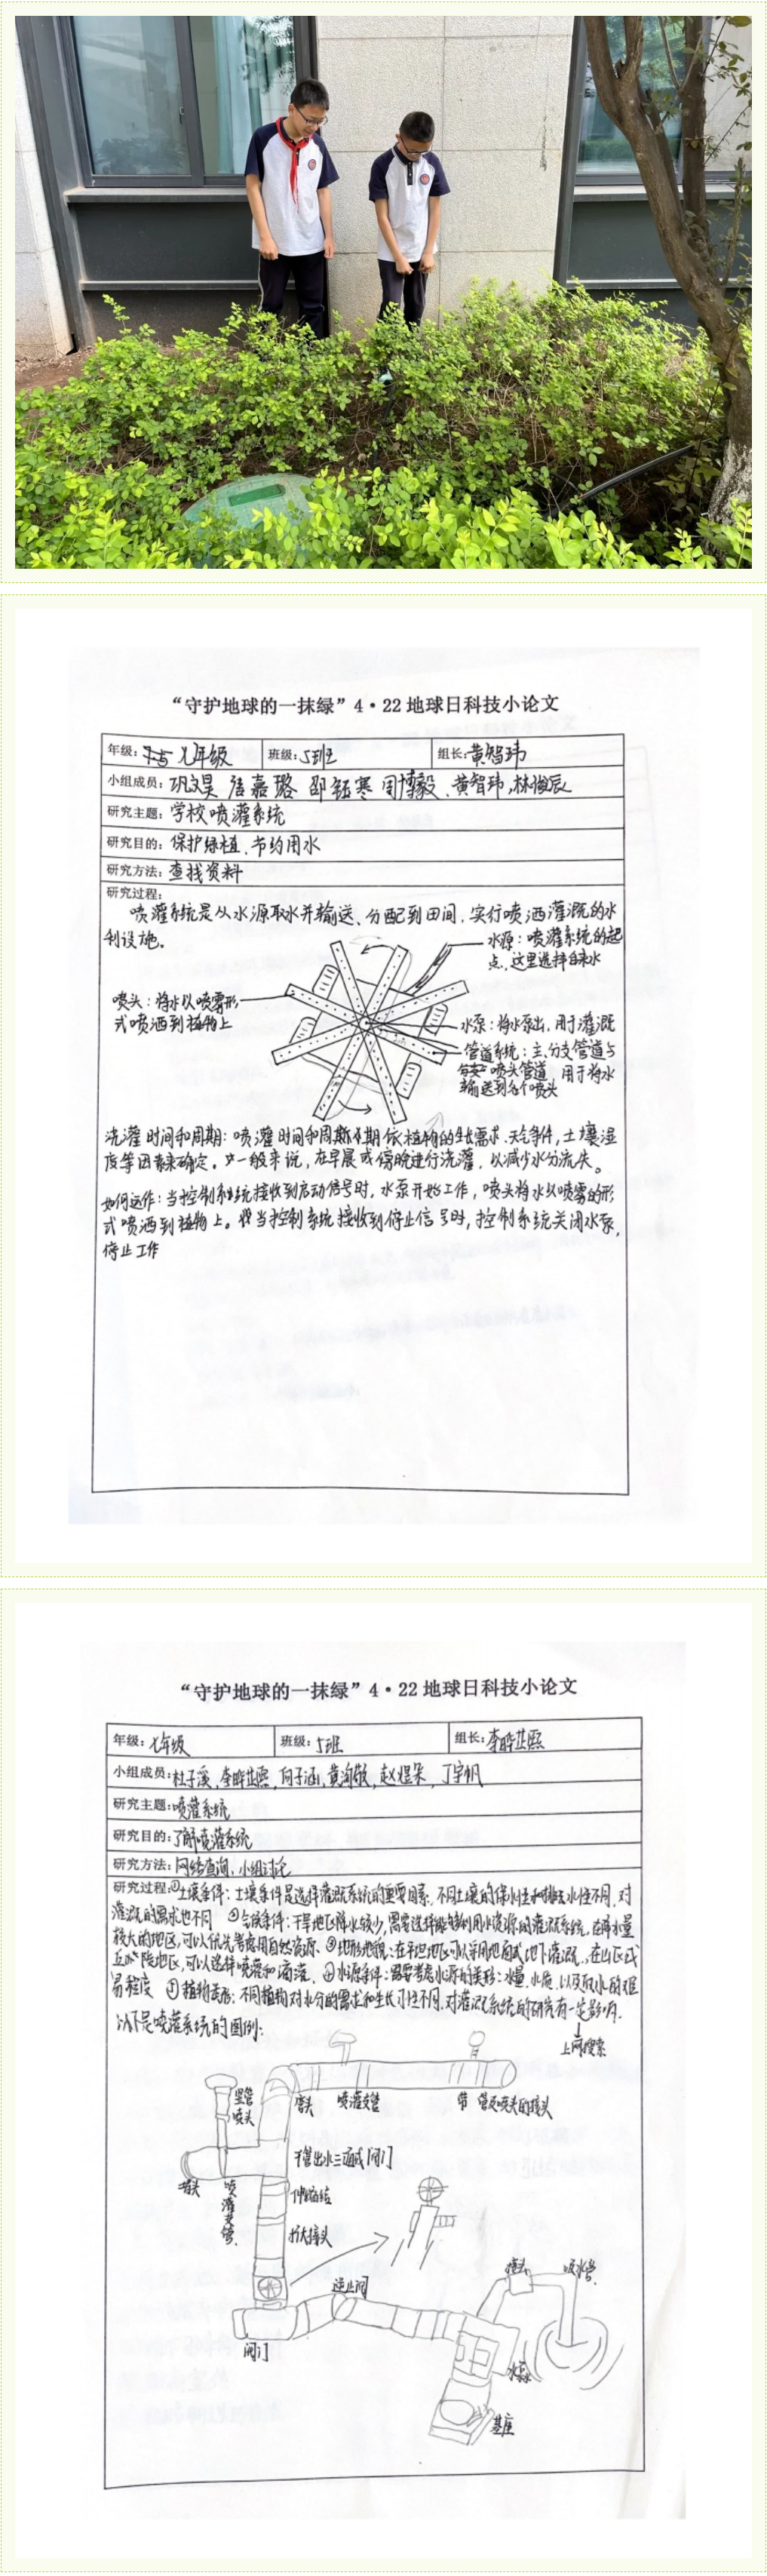 “守护地球的一抹绿”4·22地球日科技小论文
年级：七年级 班级：5班 组长：黄智玮
小组成员：巩文昊 唐嘉璐 邵钰寒 周博毅、黄智玮，林俊辰
研究主题：学校喷灌系统
研究目的：保护绿植、节约用水
研究方法：查找资料
研究过程：
喷灌系统是从水源取水并输送、分配到田间，实行喷洒灌溉的水
利设施。
水源：喷灌系统的起
点，这里选择自来水
喷头：将水以喷雾形
式喷洒到植物上
水泵：将水泵出，用于灌溉
管道系统：主、分支管道与
喷头管道，用于将水
输送到各个喷头
浇灌时间和周期：喷灌时间和周期依植物的生长需求、天气条件，土壤湿
度等因素来确定。一般来说，在早晨或傍晚进行浇灌，以减少水分流失。
如何运作：当控制系统接收到启动信号时，水泵开始工作，喷头将水以喷雾的形
式喷洒到植物上。当控制系统接收到停止信号时，控制系统关闭水泵，
停止工作
“守护地球的一抹绿”4·22地球日科技小论文
年级：七年级 班级：5班 组长：李晔芷熙
小组成员：杜子溪，李晔芷熙，向子涵，黄洵敬，赵煜，丁宇帆
研究主题：喷灌系统
研究目的：了解喷灌系统
研究方法：网络查询，小组讨论
研究过程：①土壤条件：土壤条件是选择灌溉系统的重要因素，不同土壤的保水性和排水性不同，对
灌溉的需求也不同 ②气候条件：干旱地区降水较少，需要选择能够利用水资源的灌溉系统，在降水量
较大的地区，可以优先考虑用自然资源 ③地形地貌：在平坦地区可以采用地面或地下灌溉，在山区或
丘陵地区，可以选择喷灌和滴灌。④水源条件：需要考虑水源的类型，水量，水质，以及取水的难
易程度 ⑤植物类形：不同植物对水分的需求和生长习性不同，对灌溉系统的研究有一定影响。
以下是喷灌系统的图例：
上网搜索
竖管
喷头
弯头 喷灌支管 带 管及喷头的接头
干管出水三通或闸门
堵头
喷灌支管
伸缩结
扩大接头
逆止阀
弯头 吸水管
闸门
水泵
基座